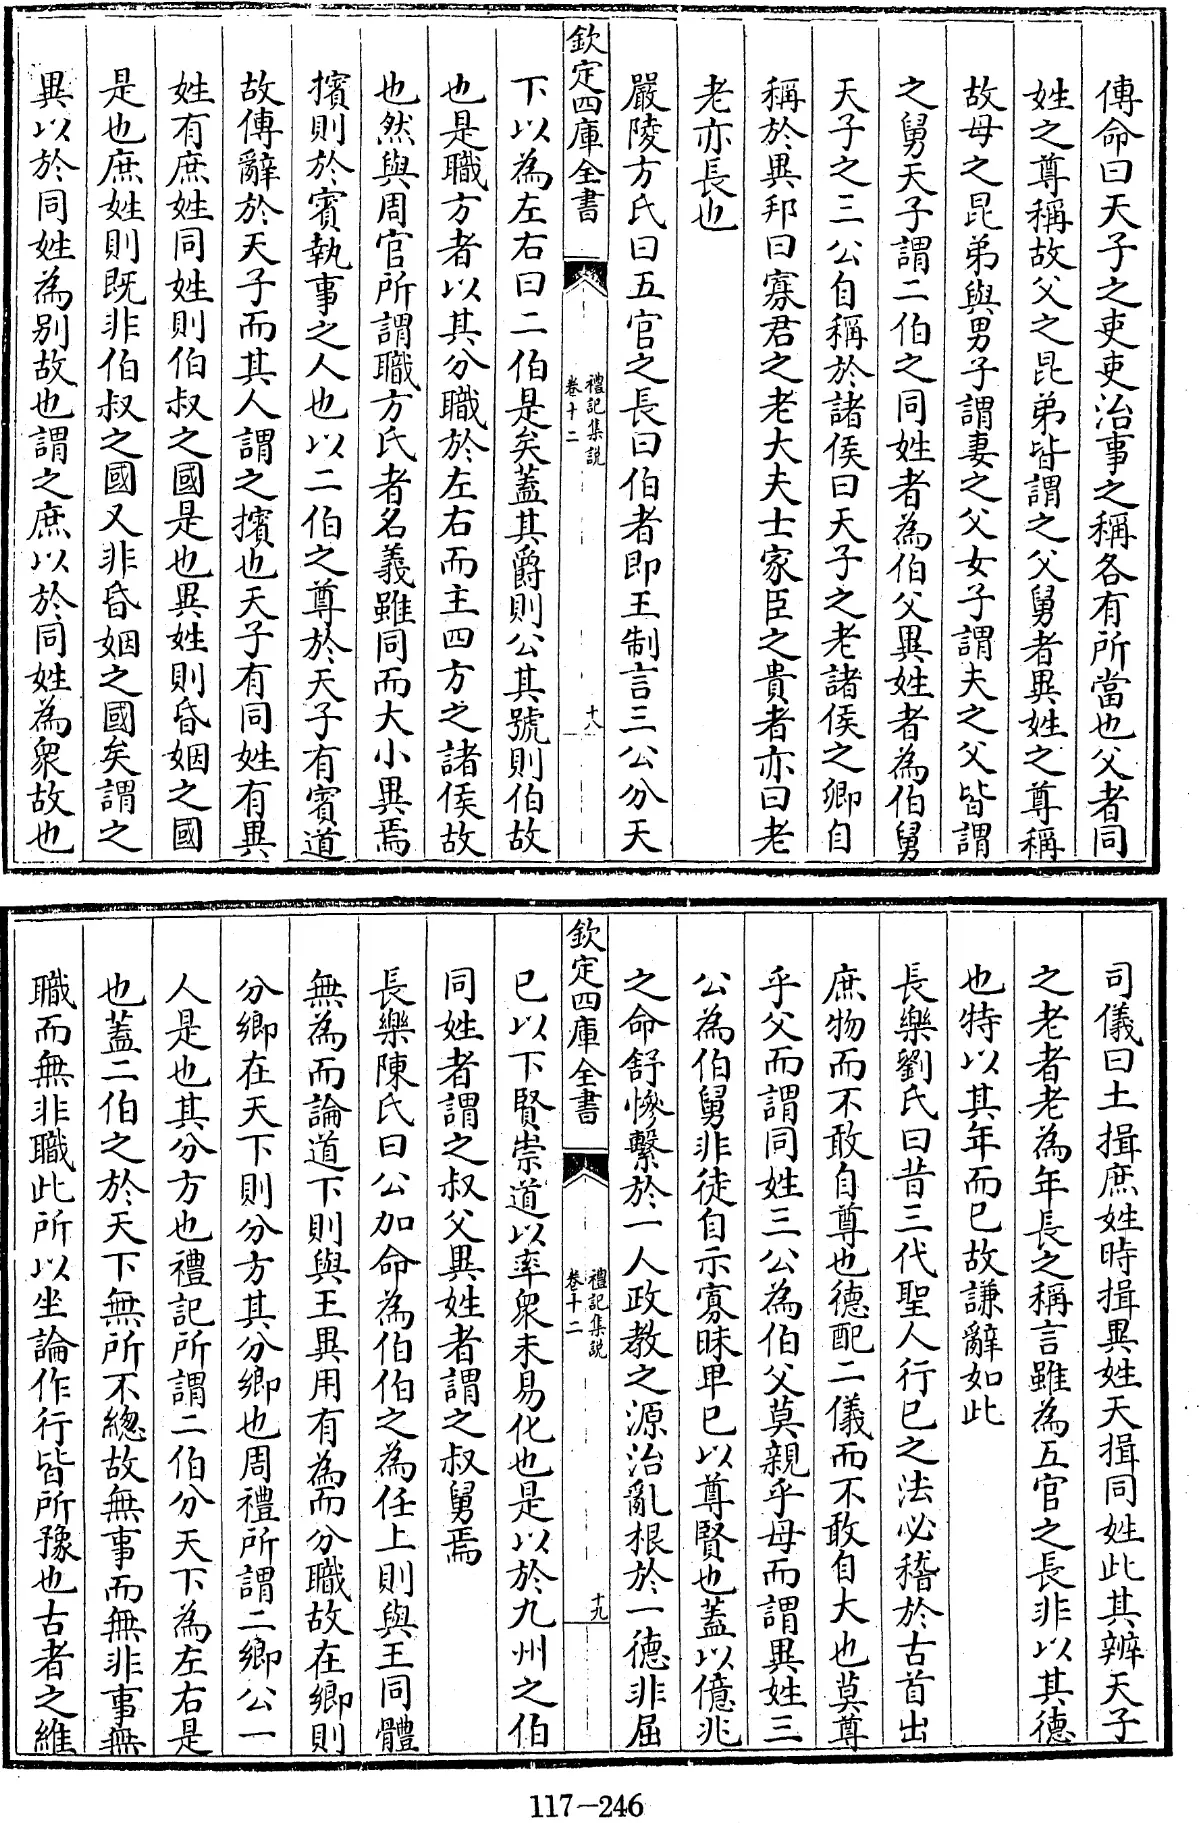 傳命曰天子之吏吏治事之稱各有所當也父者同
姓之尊稱故父之昆弟皆謂之父舅者異姓之尊稱
故母之昆弟與男子謂妻之父女子謂夫之父皆謂
之舅天子謂二伯之同姓者為伯父異姓者為伯舅
天子之三公自稱於諸侯曰天子之老諸侯之卿自
稱於異邦曰寡君之老大夫士家臣之貴者亦曰老
老亦長也
嚴陵方氏曰五官之長曰伯者即王制言三公分天
欽定四庫全書
禮記集說
卷十二
十八
下以為左右曰二伯是矣蓋其爵則公其號則伯故
也是職方者以其分職於左右而主四方之諸侯故
也然與周官所謂職方氏者名義雖同而大小異焉
擯則於賓執事之人也以二伯之尊於天子有賓道
故傳辭於天子而其人謂之擯也天子有同姓有異
姓有庶姓同姓則伯叔之國是也異姓則昏姻之國
是也庶姓則既非伯叔之國又非昏姻之國矣謂之
異以於同姓為别故也謂之庶以於同姓為衆故也
司儀曰土揖庶姓時揖異姓天揖同姓此其辨天子
之老者老為年長之稱言雖為五官之長非以其德
也特以其年而已故謙辭如此
長樂劉氏曰昔三代聖人行已之法必稽於古首出
庶物而不敢自尊也德配二儀而不敢自大也莫尊
乎父而謂同姓三公為伯父莫親乎母而謂異姓三
公為伯舅非徒自示寡昧卑已以尊賢也蓋以億兆
之命舒慘繫於一人政教之源治亂根於一德非屈
欽定四庫全書
禮記集說
卷十二
十九
已以下賢崇道以率衆未易化也是以於九州之伯
同姓者謂之叔父異姓者謂之叔舅焉
長樂陳氏曰公加命為伯伯之為任上則與王同體
無為而論道下則與王異用有為而分職故在鄉則
分鄉在天下則分方其分鄉也周禮所謂二鄉公一
人是也其分方也禮記所謂二伯分天下為左右是
也蓋二伯之於天下無所不總故無事而無非事無
職而無非職此所以坐論作行皆所豫也古者之維
117-246